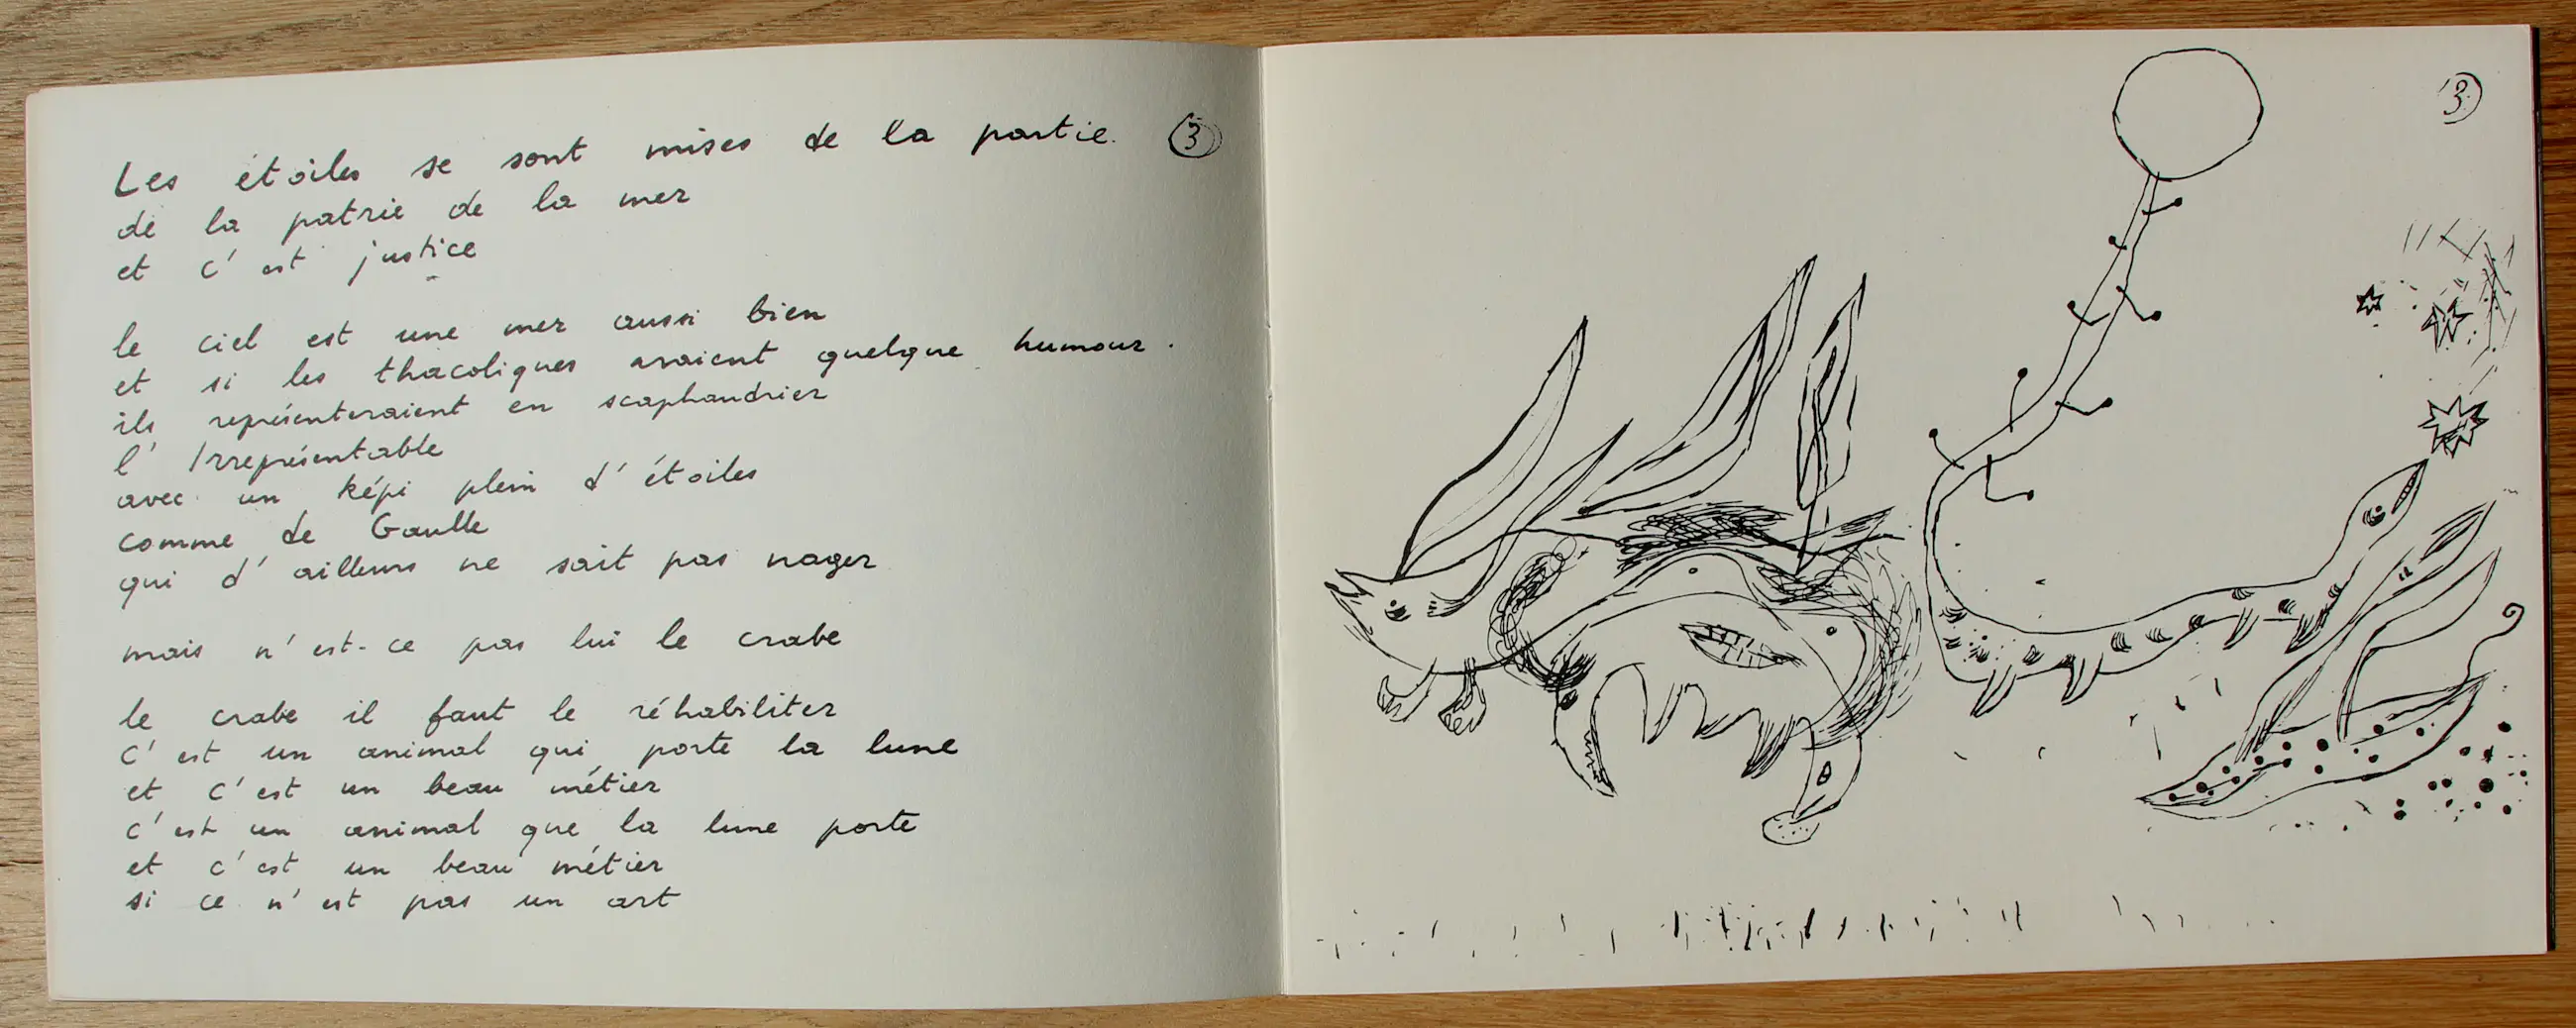 Les étoiles se sont mises de la partie. 3
de la patrie de la mer
et c'est justice
le ciel est une mer aussi bien
et si les thacoliques avaient quelque humour.
ils représenteraient en scaphandrier
l'Irreprésentable
avec un képi plein d'étoiles
comme de Gaulle
qui d'ailleurs ne sait pas nager
mais n'est-ce pas lui le crabe
le crabe il faut le réhabiliter
c'est un animal qui porte la lune
et c'est un beau métier
c'est un animal que la lune porte
et c'est un beau métier
si ce n'est pas un art
3